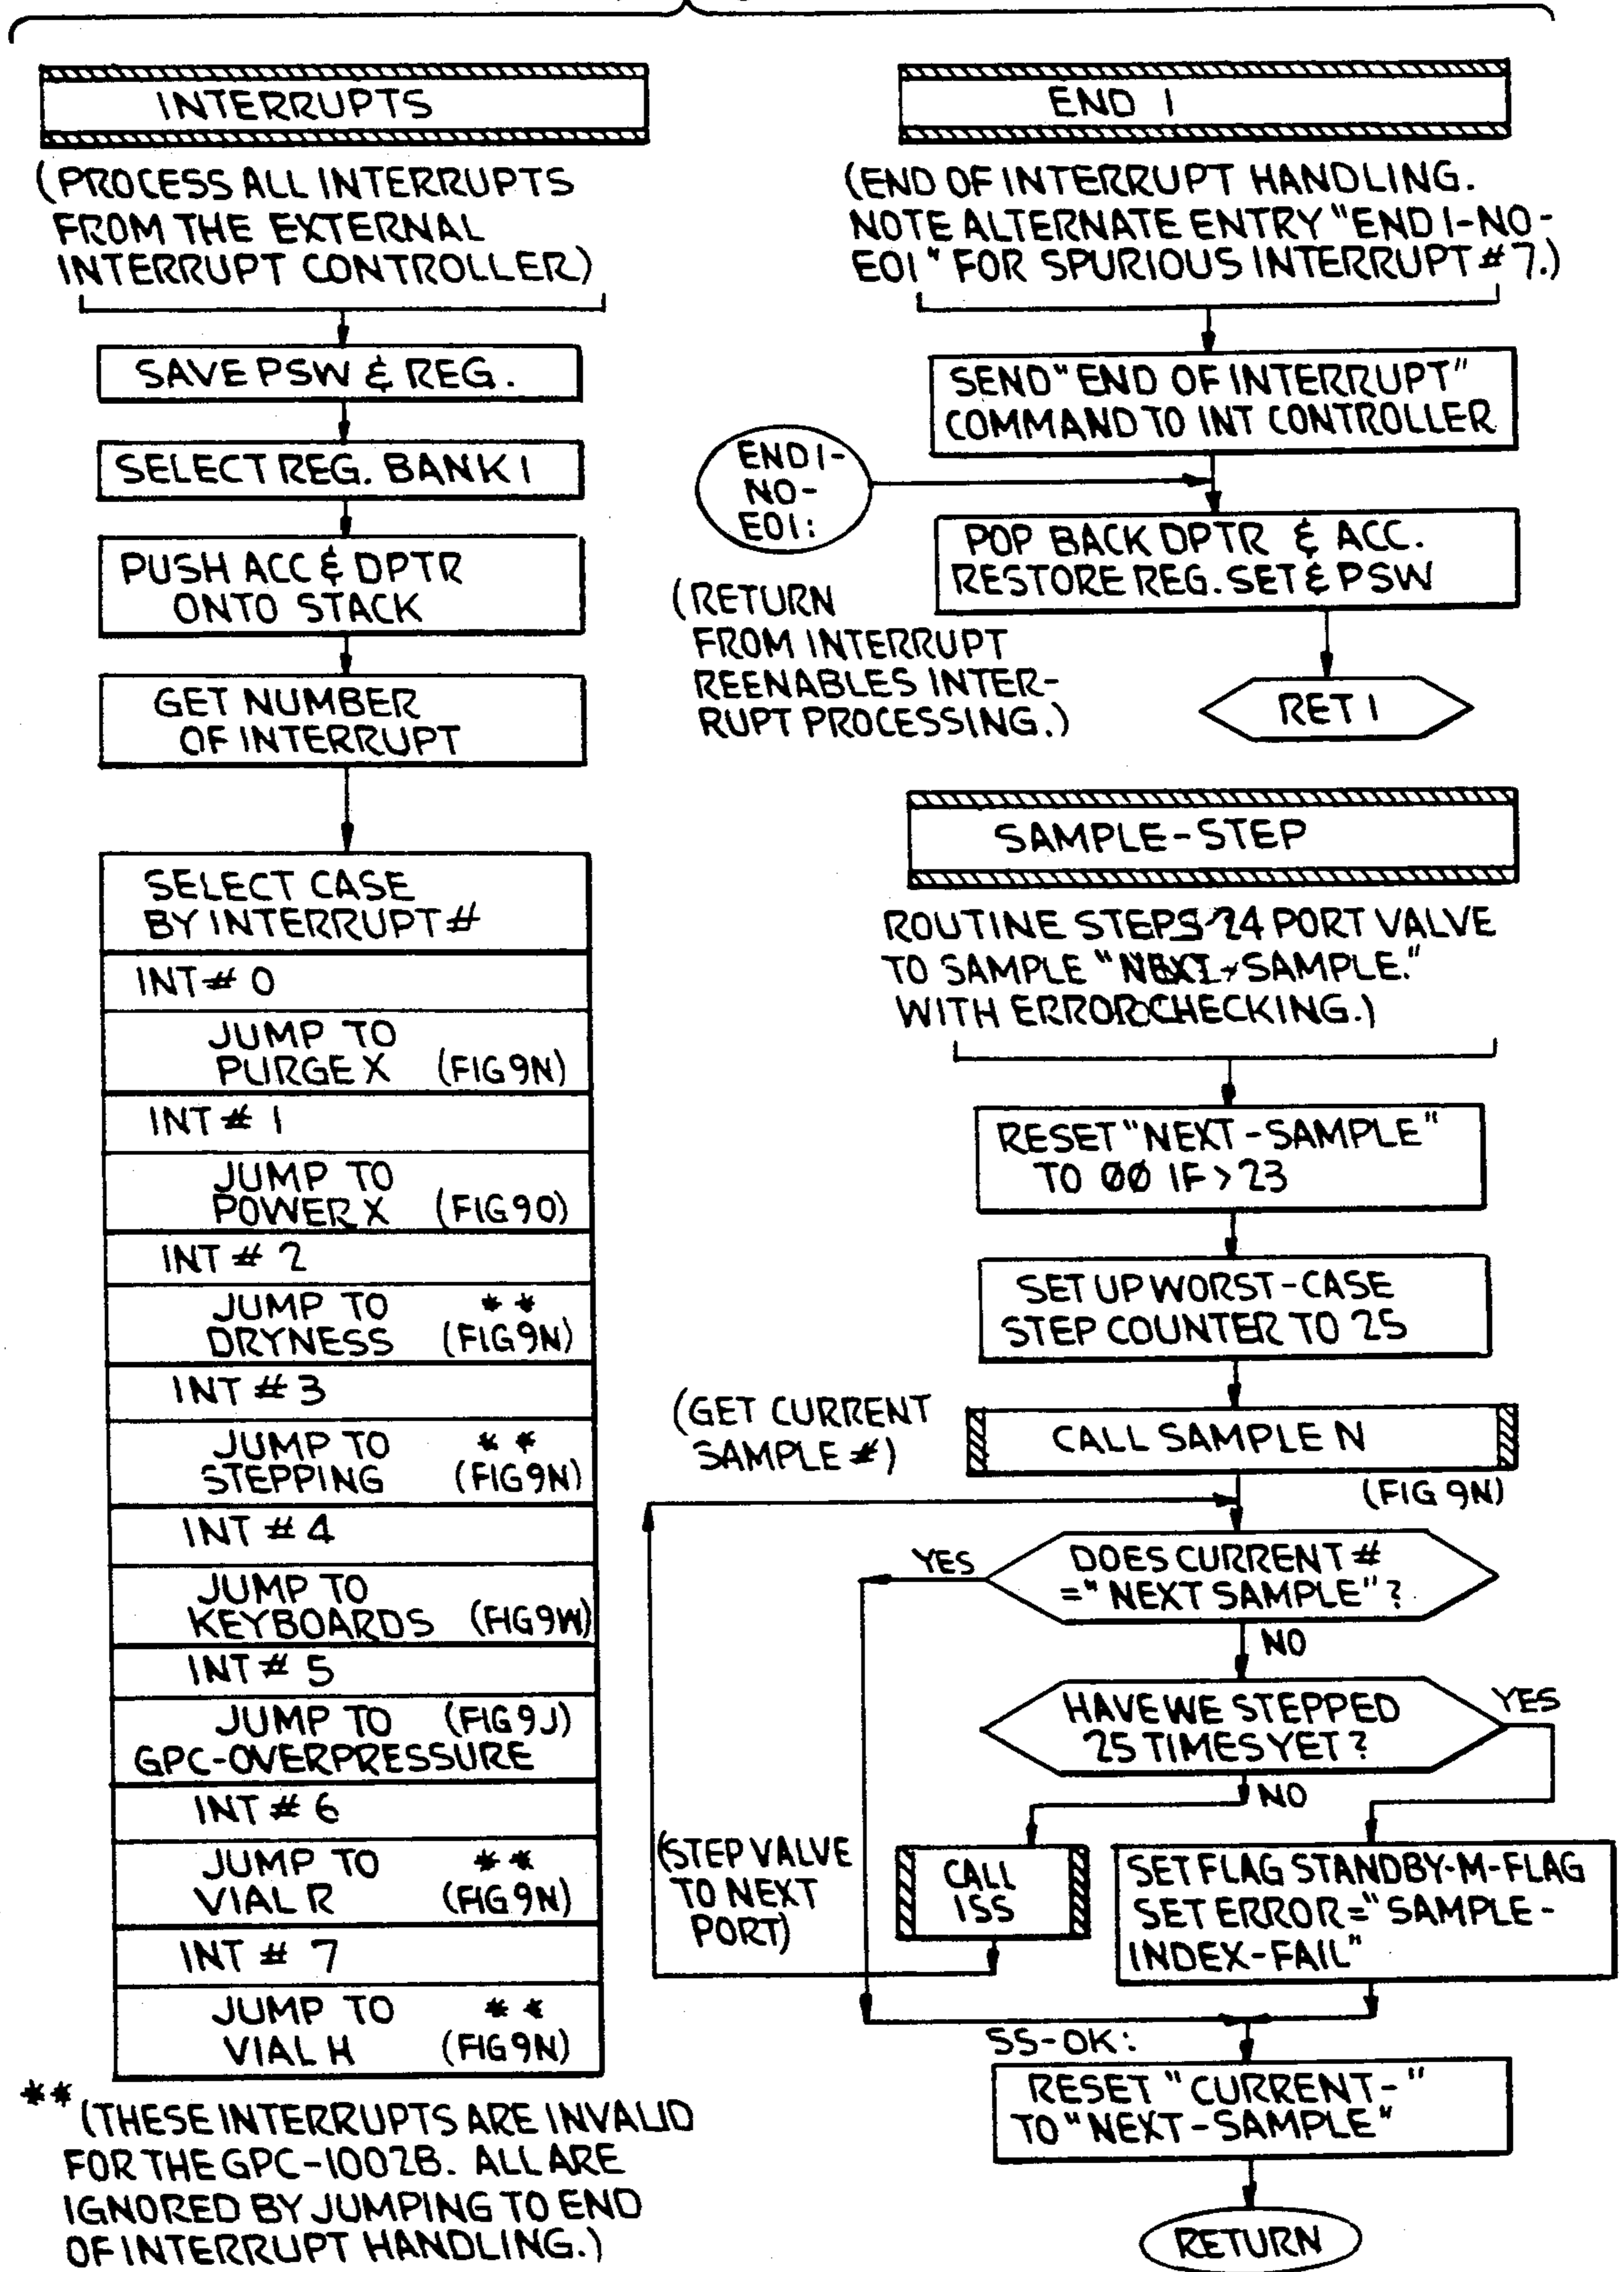 INTERRUPTS
(PROCESS ALL INTERRUPTS
FROM THE EXTERNAL
INTERRUPT CONTROLLER)
SAVE PSW & REG.
SELECT REG. BANK 1
PUSH ACC & DPTR
ONTO STACK
GET NUMBER
OF INTERRUPT
SELECT CASE
BY INTERRUPT #
INT # 0
JUMP TO
PURGE X (FIG 9N)
INT # 1
JUMP TO
POWER X (FIG 9O)
INT # 2
JUMP TO **
DRYNESS (FIG 9N)
INT # 3
JUMP TO **
STEPPING (FIG 9N)
INT # 4
JUMP TO
KEYBOARDS (FIG 9W)
INT # 5
JUMP TO (FIG 9J)
GPC-OVERPRESSURE
INT # 6
JUMP TO **
VIAL R (FIG 9N)
INT # 7
JUMP TO **
VIAL H (FIG 9N)
** (THESE INTERRUPTS ARE INVALID
FOR THE GPC-1002B. ALL ARE
IGNORED BY JUMPING TO END
OF INTERRUPT HANDLING.)
END I
(END OF INTERRUPT HANDLING.
NOTE ALTERNATE ENTRY "END I-NO-
EOI" FOR SPURIOUS INTERRUPT # 7.)
SEND "END OF INTERRUPT"
COMMAND TO INT CONTROLLER
END I-
NO-
EOI:
POP BACK DPTR & ACC.
RESTORE REG. SET & PSW
(RETURN
FROM INTERRUPT
REENABLES INTER-
RUPT PROCESSING.)
RET I
SAMPLE-STEP
ROUTINE STEPS 24 PORT VALVE
TO SAMPLE "NEXT-SAMPLE."
WITH ERROR CHECKING.)
RESET "NEXT-SAMPLE"
TO ØØ IF > 23
SET UP WORST-CASE
STEP COUNTER TO 25
(GET CURRENT
SAMPLE #)
CALL SAMPLE N
(FIG 9N)
DOES CURRENT #
="NEXT SAMPLE"?
YES
NO
HAVE WE STEPPED
25 TIMES YET?
YES
NO
(STEP VALVE
TO NEXT
PORT)
CALL
ISS
SET FLAG STANDBY-M-FLAG
SET ERROR="SAMPLE-
INDEX-FAIL"
SS-OK:
RESET "CURRENT-"
TO "NEXT-SAMPLE"
RETURN